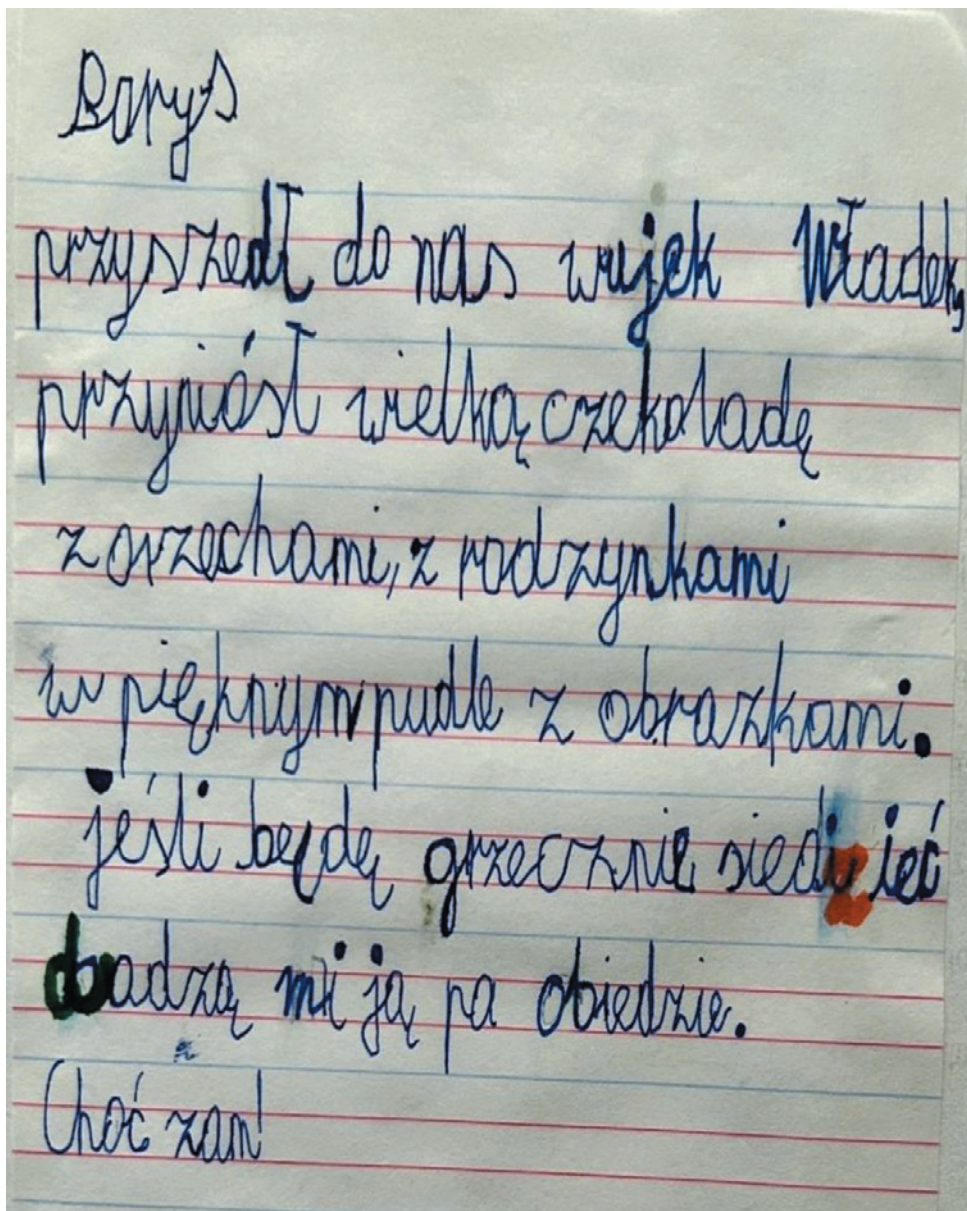 Borys
przyszedł do nas wujek Władek,
przyniósł wielką czekoladę
z orzechami, z rodzynkami
w pięknym pudle z obrazkami.
jeśli będę grzecznie siedzieć
dadzą mi ją po obiedzie.
Choć zam!